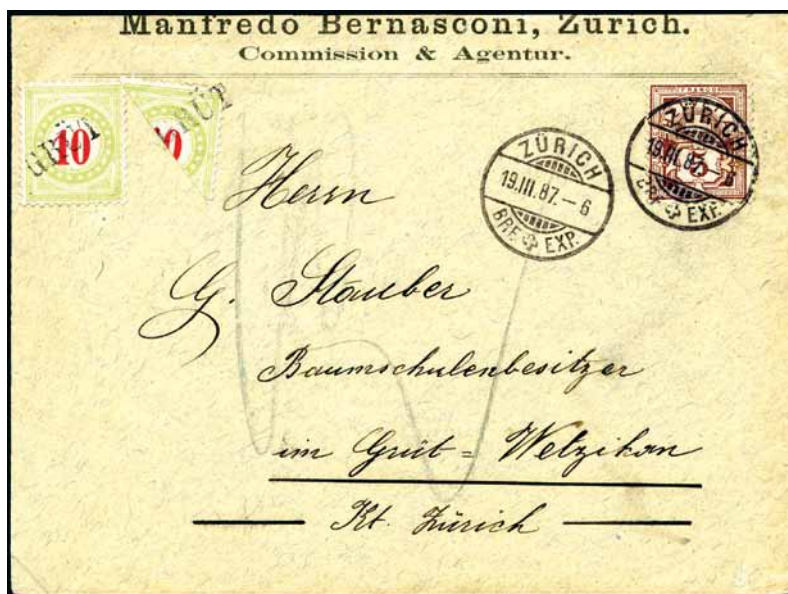 Manfredo Bernasconi, Zürich.
Commission & Agentur.
GRÜT
10
GRÜT
0
FRANCO
ZÜRICH
19.III.87.-6
BRF. EXP.
ZÜRICH
19.III.87.-6
BRF. EXP.
5
Herrn
G. Stauber
Baumschulenbesitzer
im Grüt = Wetzikon
Kt. Zürich